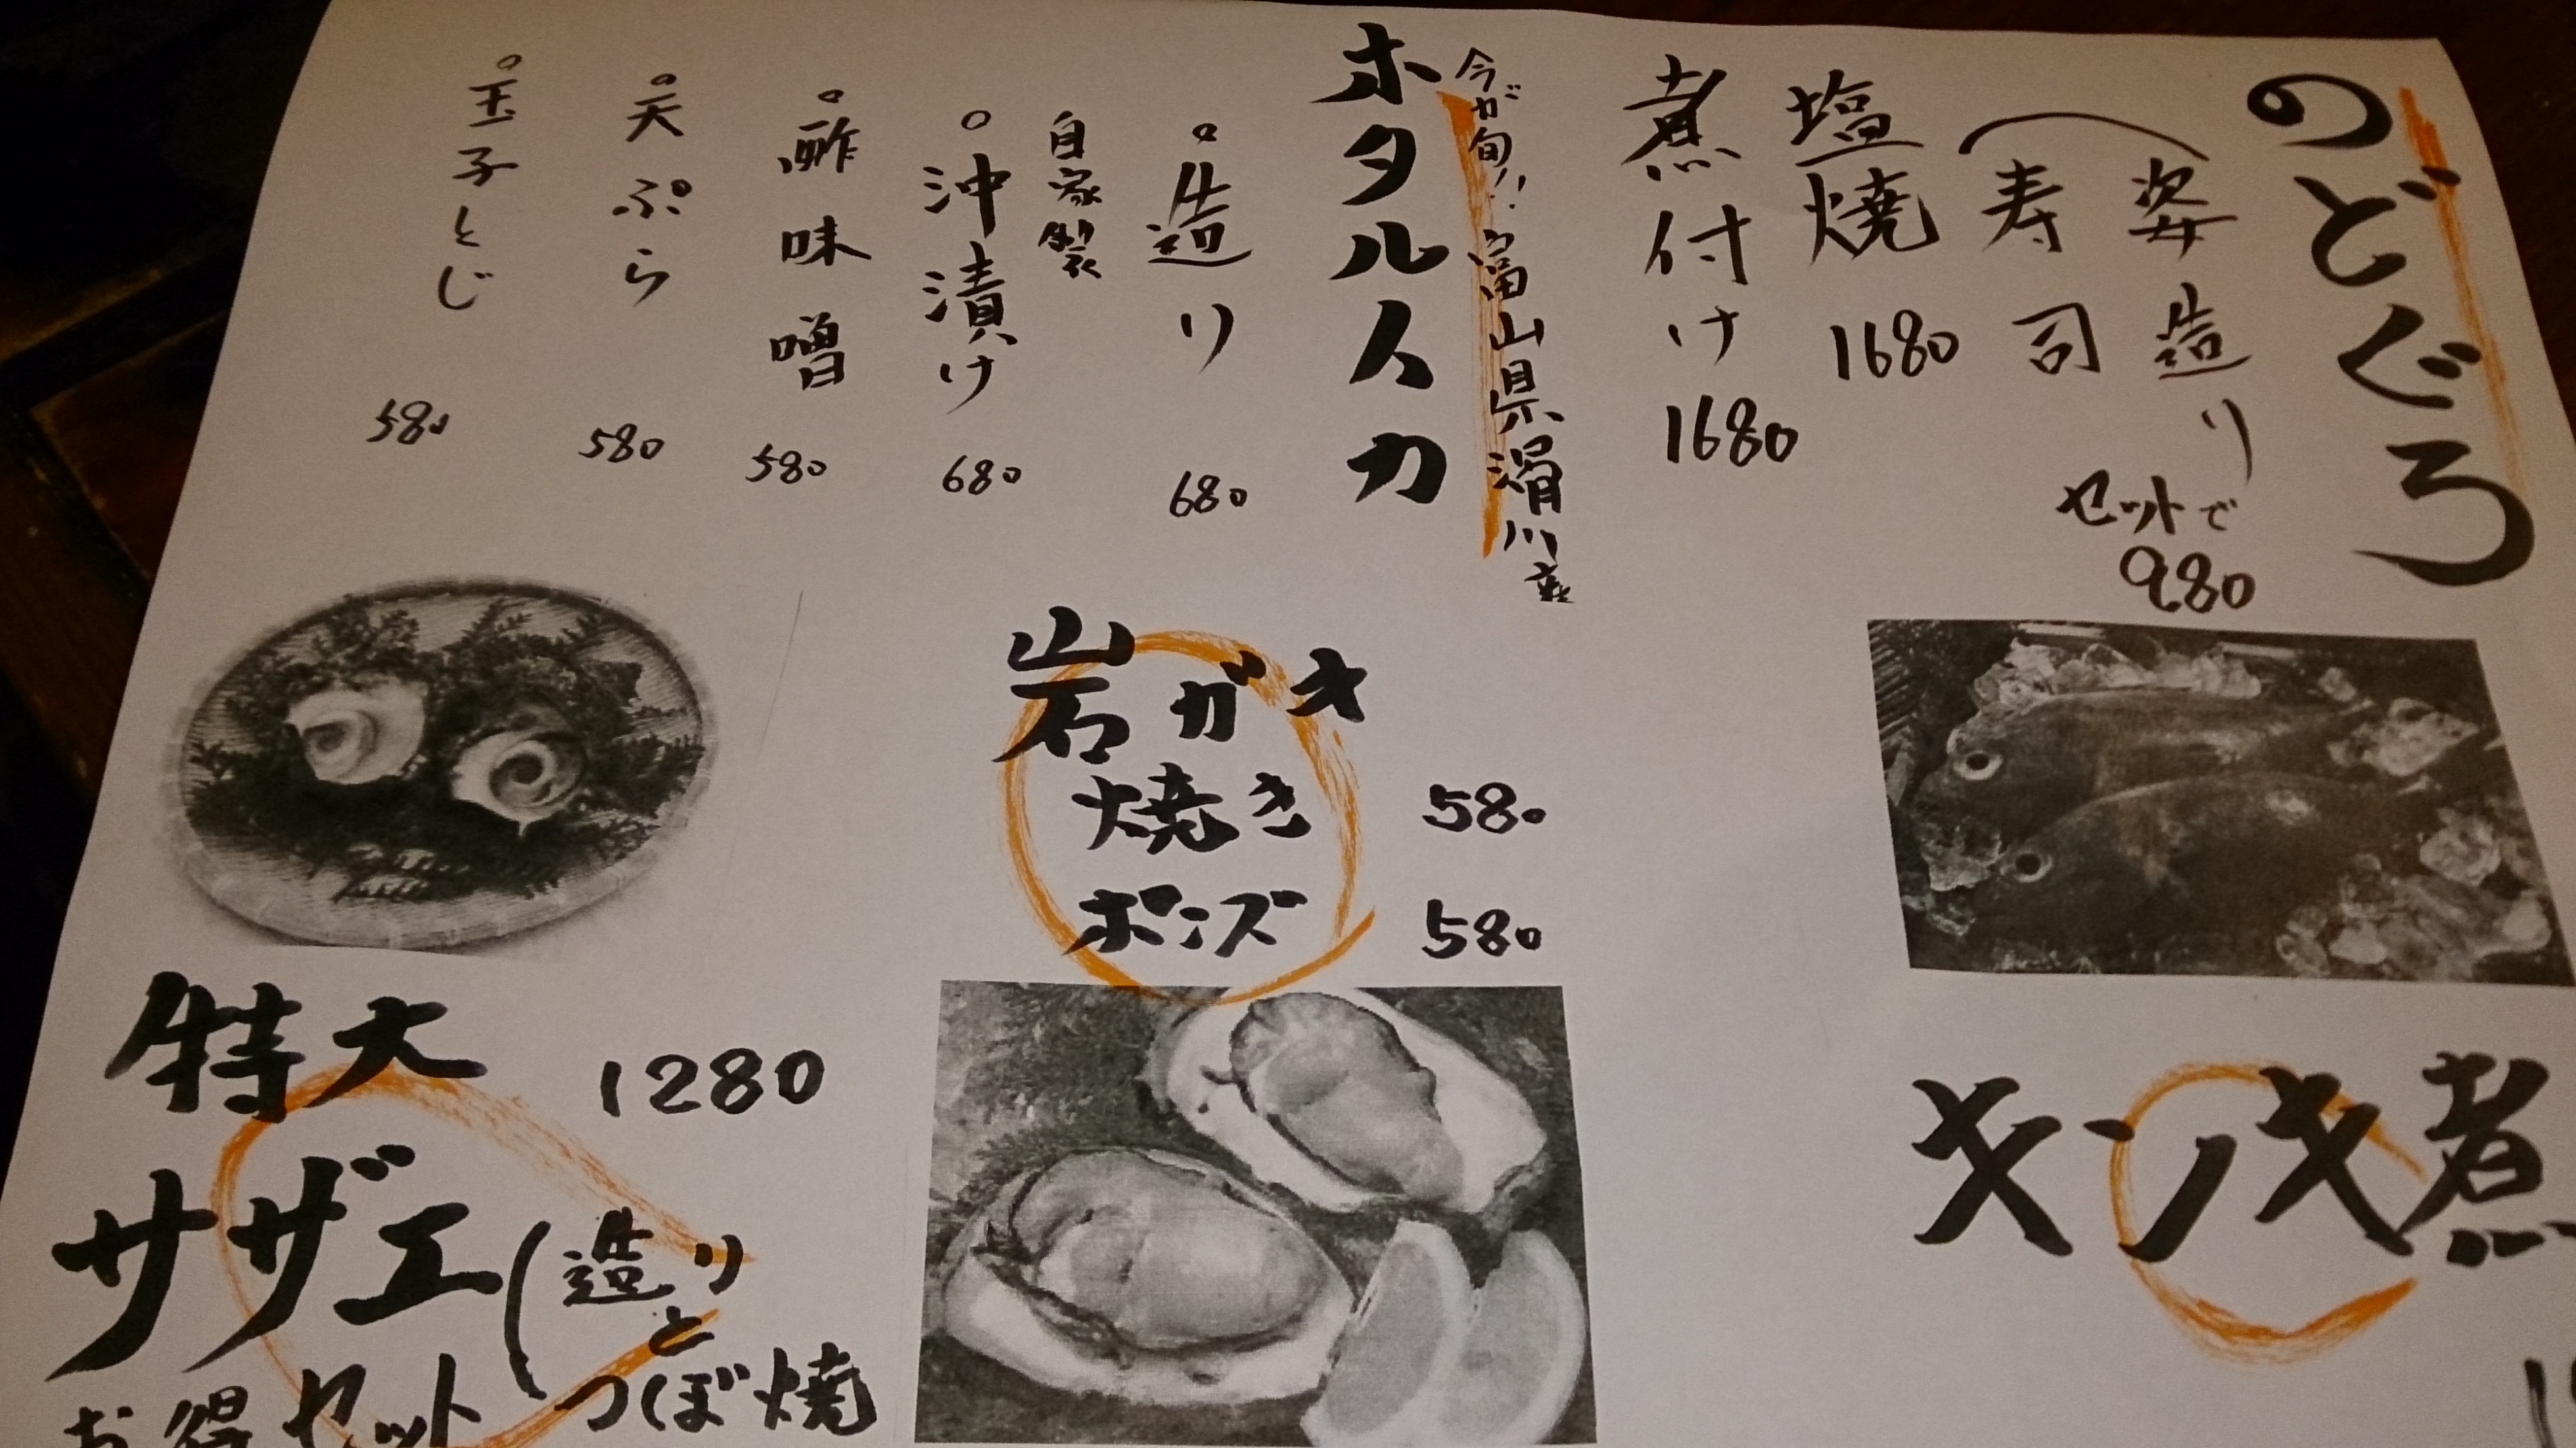 のどぐろ
姿造り
寿司
セットで
980
塩焼 1680
煮付け 1680
今が旬!! 富山県滑川産
ホタルイカ
。造り 680
自家製
。沖漬け 680
。酢味噌 580
。天ぷら 580
。玉子とじ 580
岩ガキ
焼き 580
ポンズ 580
特大
サザエ 1280
(造り
と
つぼ焼
お得セット
キンキ煮